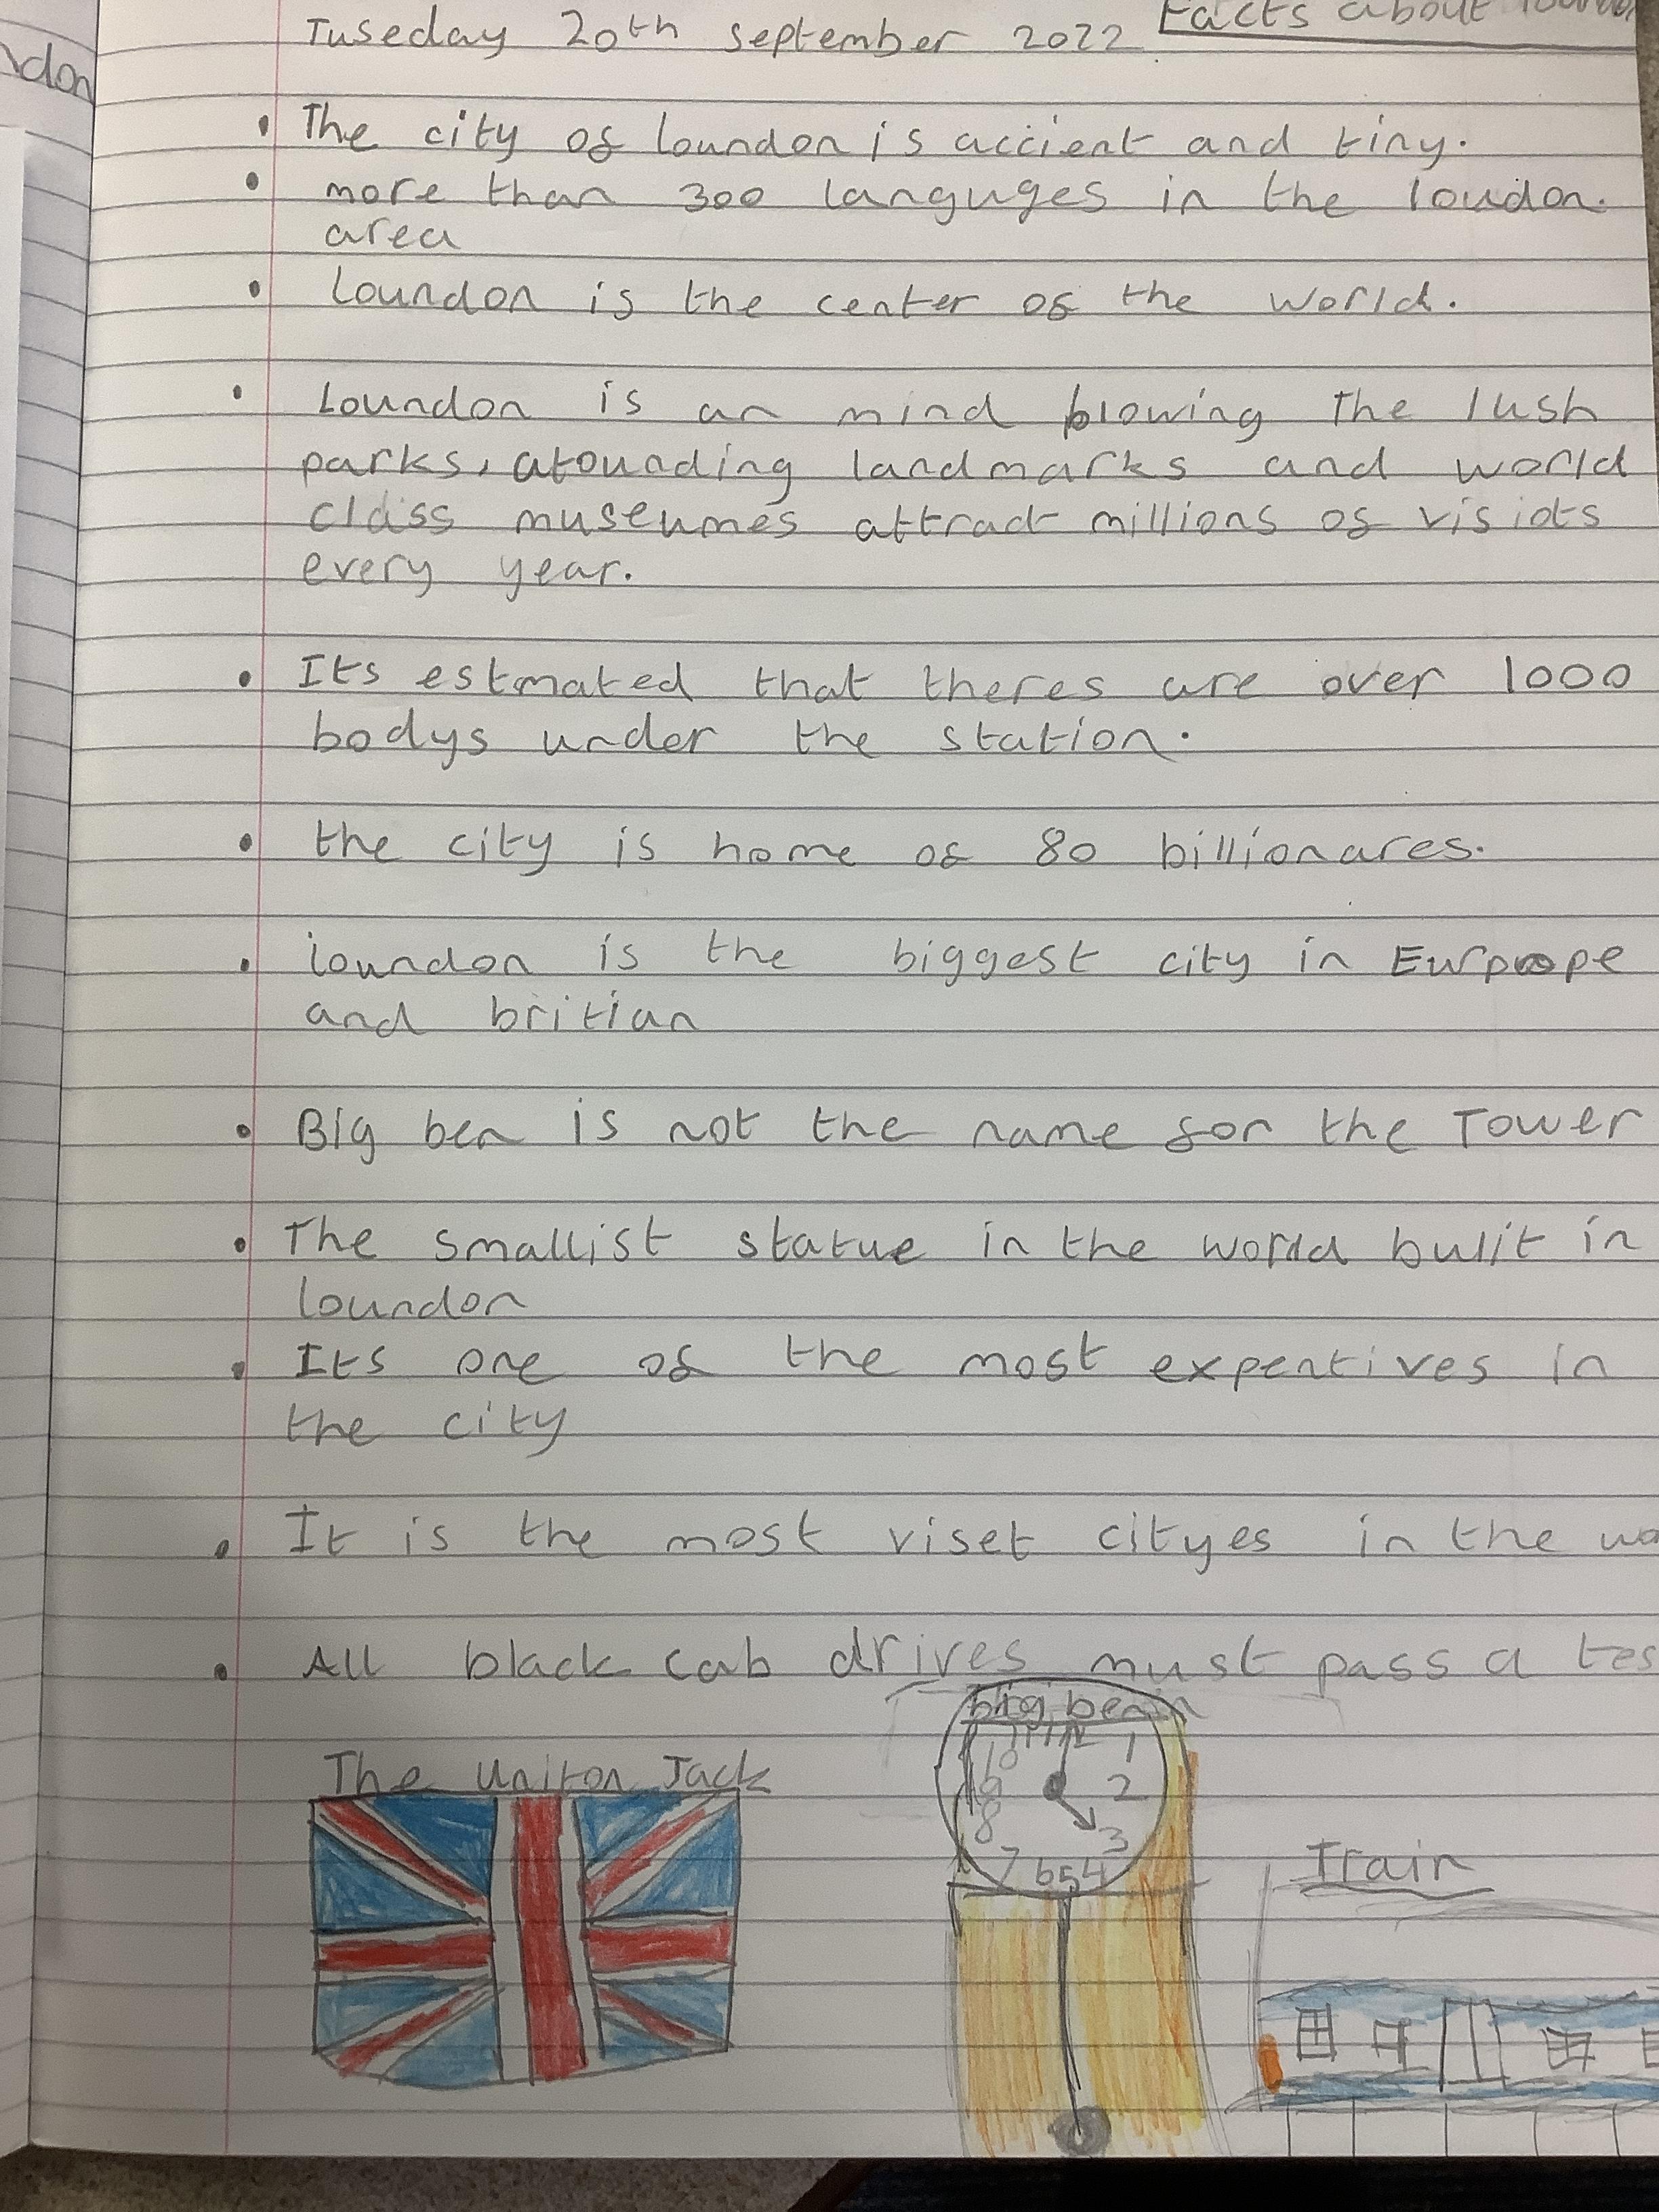 Tuseday 20th september 2022 Facts about
ndon
• The city of loundon is accient and tiny.
• more than 300 languges in the loudon.
area
• loundon is the center of the world.
• Loundon is an mind blowing the lush
parks, atounding landmarks and world
class museumes attract millions of visiots
every year.
• Its estmated that theres are over 1000
bodys under the station.
• the city is home of 80 billionares.
• loundon is the biggest city in Eurpope
and britian
• Big ben is not the name for the Tower
• The smallist statue in the world bulit in
loundon
• Its one of the most expentives in
the city
• It is the most viset cityes in the wo
• All black cab drives must pass a tes
big ben
The Uniton Jack
12 1
10
9 2
8 3
7 6 5 4
Train